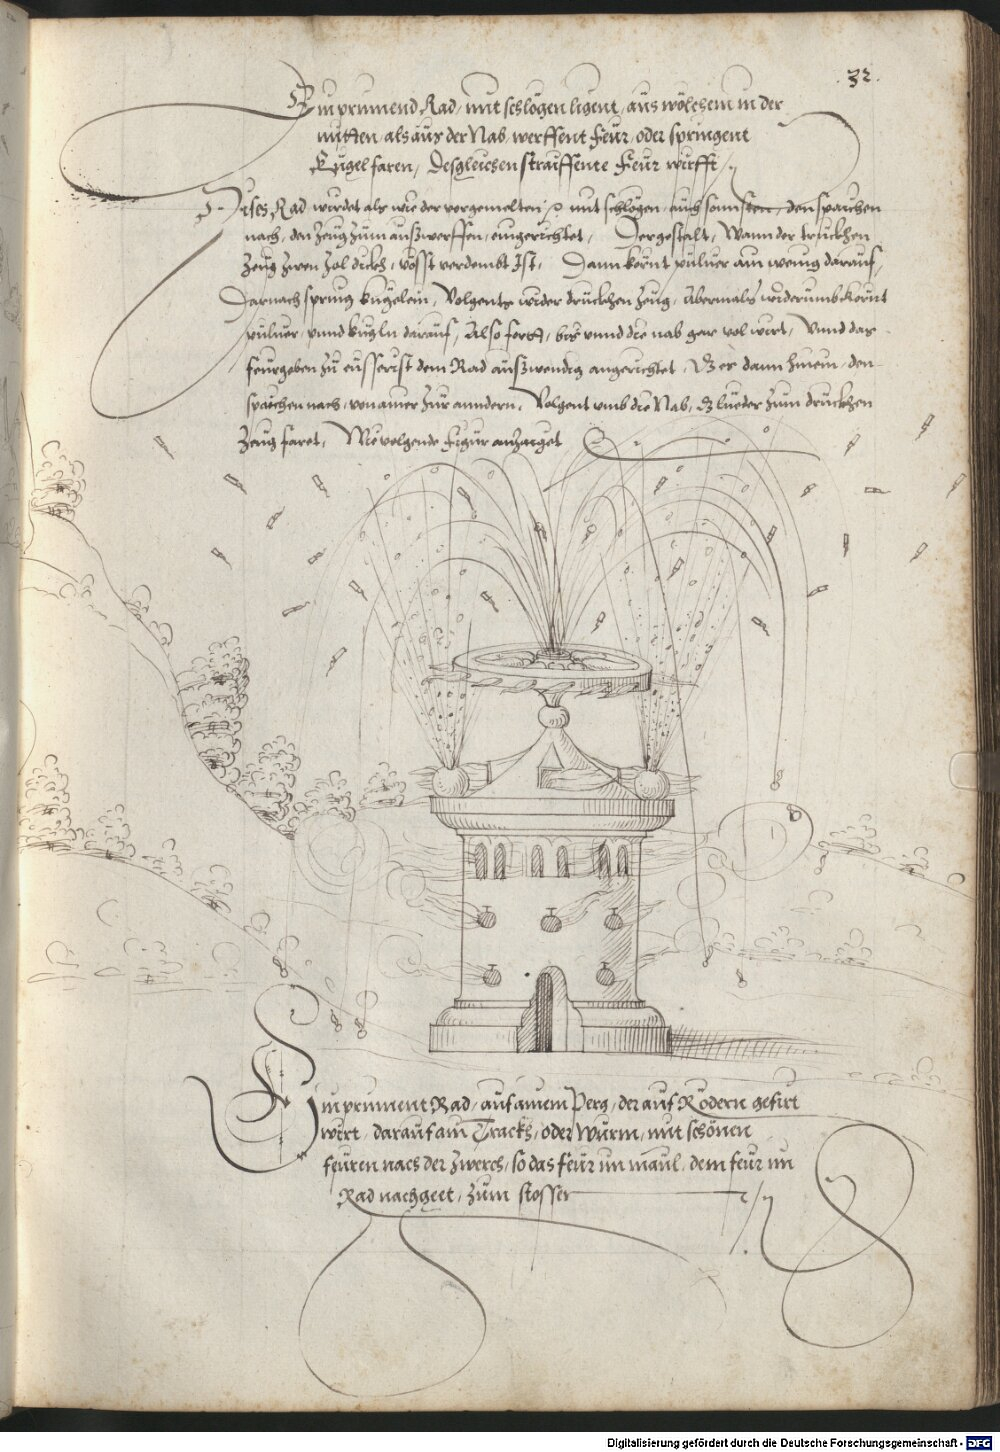 .32.
Ein prinnend Rad, mit schlögen ligent, aus wölchem in der
mitten, als aus der Nab, werffent feür, oder springent
Kugel faren, desgleichen straiffente feür wirfft
Dises Rad wirdet als wie der vorgemelten, mit schlögen, auch sonsten, den spaichen
nach, den Zeug zum außwerffen, eingerichtet, Dergestalt, Wann der truckhen
Zeug zwen Zol dickh, vösst verdembt Ist, Dann körnt puluer ain wenig darauf,
Darnach spring kugelein, Volgents wider druckhen Zeug, Abermals widerumb Körnt
puluer, vnnd kugln darauf, Also fortt, bis vmb die nab gar vol wirt, Vnnd das
feurgeben zu eüsserist dem Rad außwendig angerichtet, Das er dann hinein, den
spaichen nach, von ainer zur anndern, Volgent vmb die Nab, zum druckhen
Zeug faret, Wie volgende Figur anzaiget
Ein prinnent Rad, auf ainem Perg, der auf Rödern gefirt
wirt, darauf ain Trackh, oder Wurm, mit schönen
feüren nach der Zwerch, so das feür im maul, dem feür im
Rad nachgeet, zum stossen
Digitalisierung gefördert durch die Deutsche Forschungsgemeinschaft - DFG